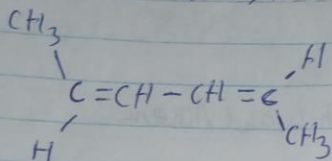 CH3
H
C=CH-CH=C
H
CH3